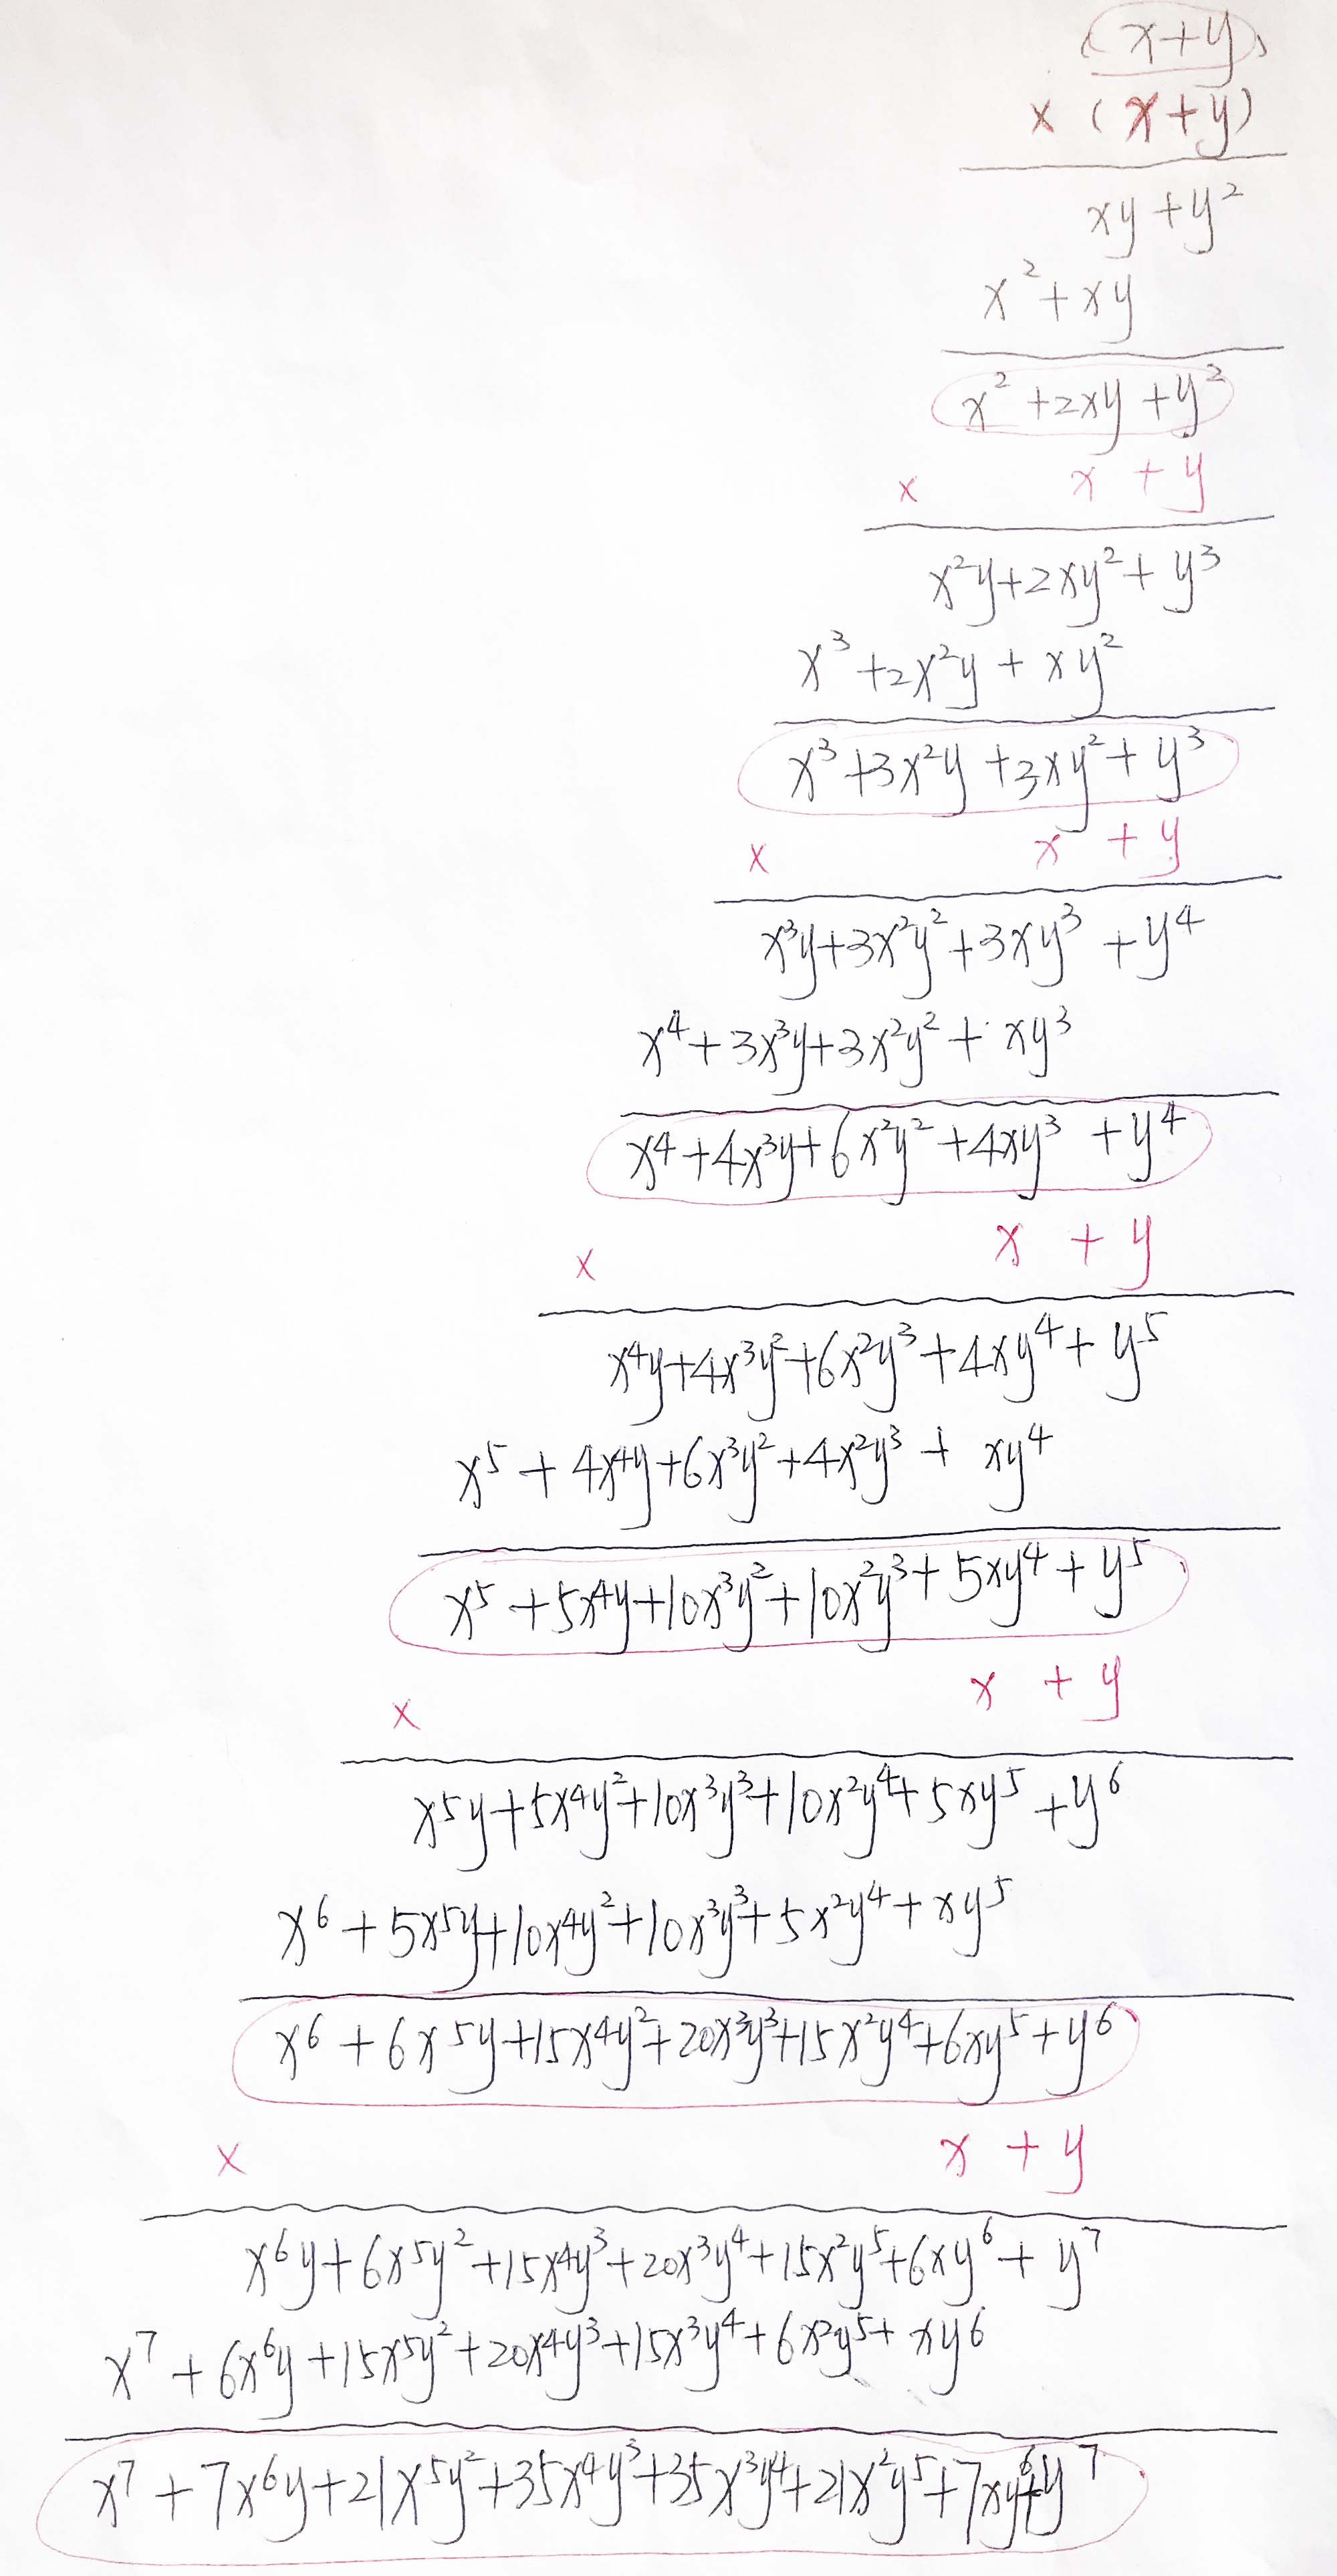 (x+y)
× (x+y)
xy+y²
x²+xy
x²+2xy+y²
× x+y
x²y+2xy²+y³
x³+2x²y+xy²
x³+3x²y+3xy²+y³
× x+y
x³y+3x²y²+3xy³+y⁴
x⁴+3x³y+3x²y²+xy³
x⁴+4x³y+6x²y²+4xy³+y⁴
× x+y
x⁴y+4x³y²+6x²y³+4xy⁴+y⁵
x⁵+4x⁴y+6x³y²+4x²y³+xy⁴
x⁵+5x⁴y+10x³y²+10x²y³+5xy⁴+y⁵
× x+y
x⁵y+5x⁴y²+10x³y³+10x²y⁴+5xy⁵+y⁶
x⁶+5x⁵y+10x⁴y²+10x³y³+5x²y⁴+xy⁵
x⁶+6x⁵y+15x⁴y²+20x³y³+15x²y⁴+6xy⁵+y⁶
× x+y
x⁶y+6x⁵y²+15x⁴y³+20x³y⁴+15x²y⁵+6xy⁶+y⁷
x⁷+6x⁶y+15x⁵y²+20x⁴y³+15x³y⁴+6x²y⁵+xy⁶
x⁷+7x⁶y+21x⁵y²+35x⁴y³+35x³y⁴+21x²y⁵+7xy⁶+y⁷